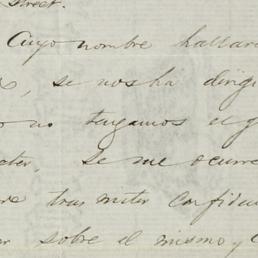 Street.
Cuyo nombre hallará
, se nos ha dirigi
no tengamos el g
, se me ocurre
re trasmiter confiden
sobre el mismo, y